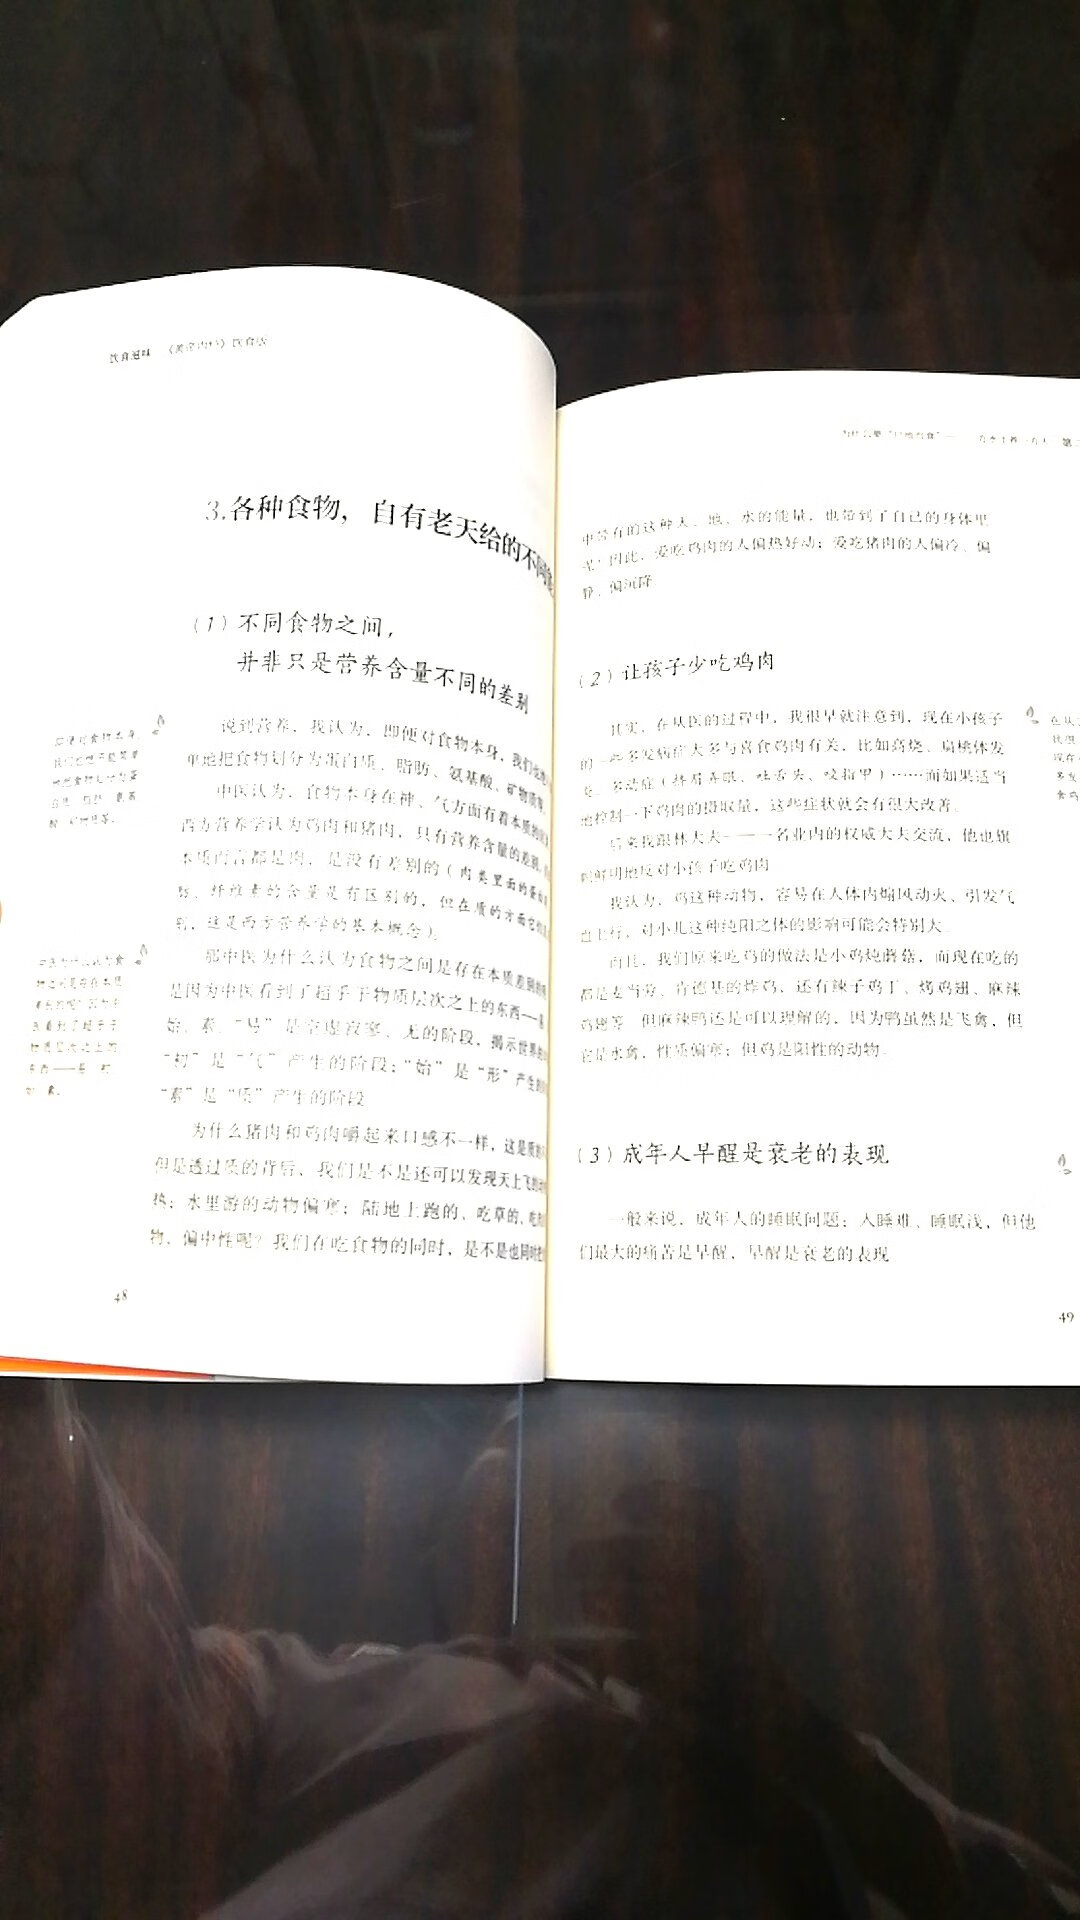 饮食滋味 《黄帝内经》饮食版
3.各种食物，自有老天给的不同
（1）不同食物之间，
并非只是营养含量不同的差别
说到营养，我认为，即便对食物本身，我们
单地把食物划分为蛋白质、脂肪、氨基酸、矿物质等。
中医认为，食物本身在神、气方面有着本质的
西方营养学认为鸡肉和猪肉，只有营养含量的差别，
本质而言都是肉，是没有差别的（肉类里面的蛋白
肪、纤维素的含量是有区别的，但在质的方面它
别，这是西方营养学的基本概念）。
那中医为什么认为食物之间是存在本质差别的
是因为中医看到了超乎于物质层次之上的东西——易
始、素。“易”是空虚寂寥、无的阶段，揭示世界
“初”是“气”产生的阶段；“始”是“形”产生的
“素”是“质”产生的阶段
为什么猪肉和鸡肉嚼起来口感不一样，这是质
但是透过质的背后，我们是不是还可以发现天上飞的
热；水里游的动物偏寒；陆地上跑的、吃草的、吃
物，偏中性呢？我们在吃食物的同时，是不是也同时把
即便对食物本身，
我们也想不能简单
地把食物划分为蛋
白质、脂肪、氨基
酸、矿物质等。
中医为什么认为食
物之间是存在本质
差别的呢？因为中
医看到了超乎于
物质层次之上的
东西——易、初、
始、素。
48
一方水土养一方人 第二
中带有的这种天、地、水的能量，也带到了自己的身体里
呢？因此，爱吃鸡肉的人偏热好动；爱吃猪肉的人偏冷、偏
静、偏沉降
（2）让孩子少吃鸡肉
其实，在从医的过程中，我很早就注意到，现在小孩子
的一些多发病症大多与喜食鸡肉有关，比如高烧、扁桃体发
炎、多动症（挤眉弄眼、吐舌头、咬指甲）……而如果适当
地控制一下鸡肉的摄取量，这些症状就会有很大改善。
后来我跟林大夫——一名业内的权威大夫交流，他也旗
帜鲜明地反对小孩子吃鸡肉
我认为，鸡这种动物，容易在人体内煽风动火、引发气
血上行，对小儿这种纯阳之体的影响可能会特别大。
而且，我们原来吃鸡的做法是小鸡炖蘑菇，而现在吃的
都是麦当劳、肯德基的炸鸡，还有辣子鸡丁、烤鸡翅、麻辣
鸡翅等 但麻辣鸭还是可以理解的，因为鸭虽然是飞禽，但
它是水禽，性质偏寒；但鸡是阳性的动物。
（3）成年人早醒是衰老的表现
一般来说，成年人的睡眠问题：入睡难、睡眠浅，但他
们最大的痛苦是早醒，早醒是衰老的表现
在从
我很
现在
多发
食鸡
49